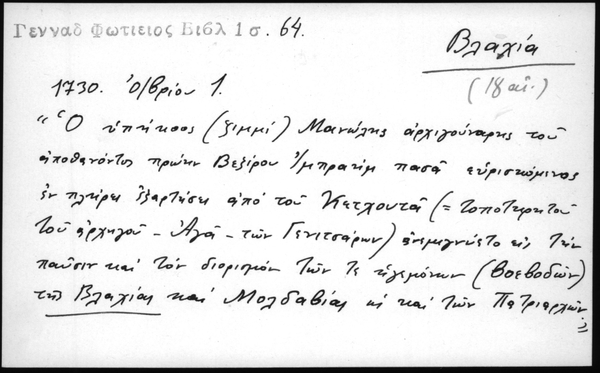 Γενναδ Φωτιειος Βιβλ 1 σ. 64.
Βλαχία
(18 αἰ.)
1730. Ὀ/βρίου 1.
"Ὁ ὑπήκοος (ζιμμί) Μανώλης ἀρχιγούναρης τοῦ
ἀποθανόντος πρώην Βεζίρου Ἰμπραήμ πασᾶ εὑρισκόμενος
ἐν πλήρει ἐξαρτήσει ἀπό τοῦ Κετχουτᾶ (= τοποτηρητοῦ
τοῦ ἀρχηγοῦ - Ἀγᾶ - τῶν Γενιτσάρων) ἀνεμιγνύετο εἰς τήν
παῦσιν καί τόν διορισμόν τῶν τε ἡγεμόνων (βοεβοδῶν)
τῆς Βλαχίας καί Μολδαβίας ὡς καί τῶν Πατριαρχῶν."